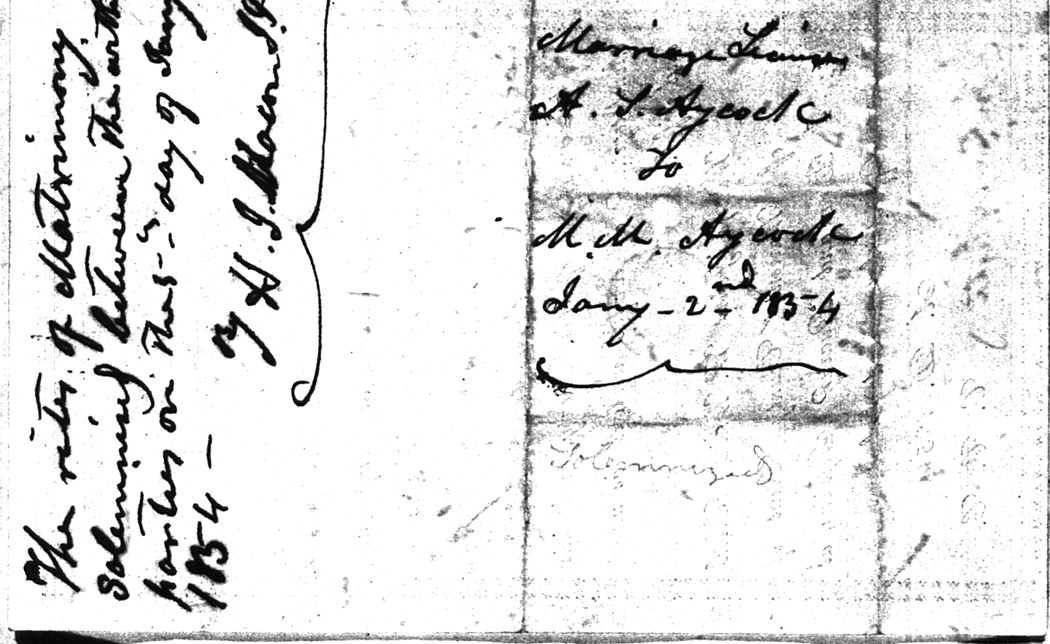 The rites of Matrimony
Solemnised between the
parties on the day of Jany
1854 –
By H. J. Macon J.P.
Marriage License
A. S. Aycock
To
M. M. Aycock
Jany – 2nd 1854
Solemnized